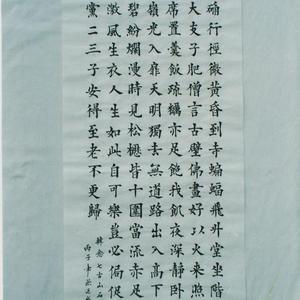 确行徑微黃昏到寺蝙蝠飛升堂坐階
大支子肥僧言古壁佛畫好以火來照
席置羹飯疏糲亦足飽我飢夜深靜卧
嶺光入扉天明獨去無道路出入高下
碧紛爛漫時見松櫪皆十圍當流赤足
激風生衣人生如此自可樂豈必侷促
黨二三子安得至老不更歸
韓愈七古山石
丙子年